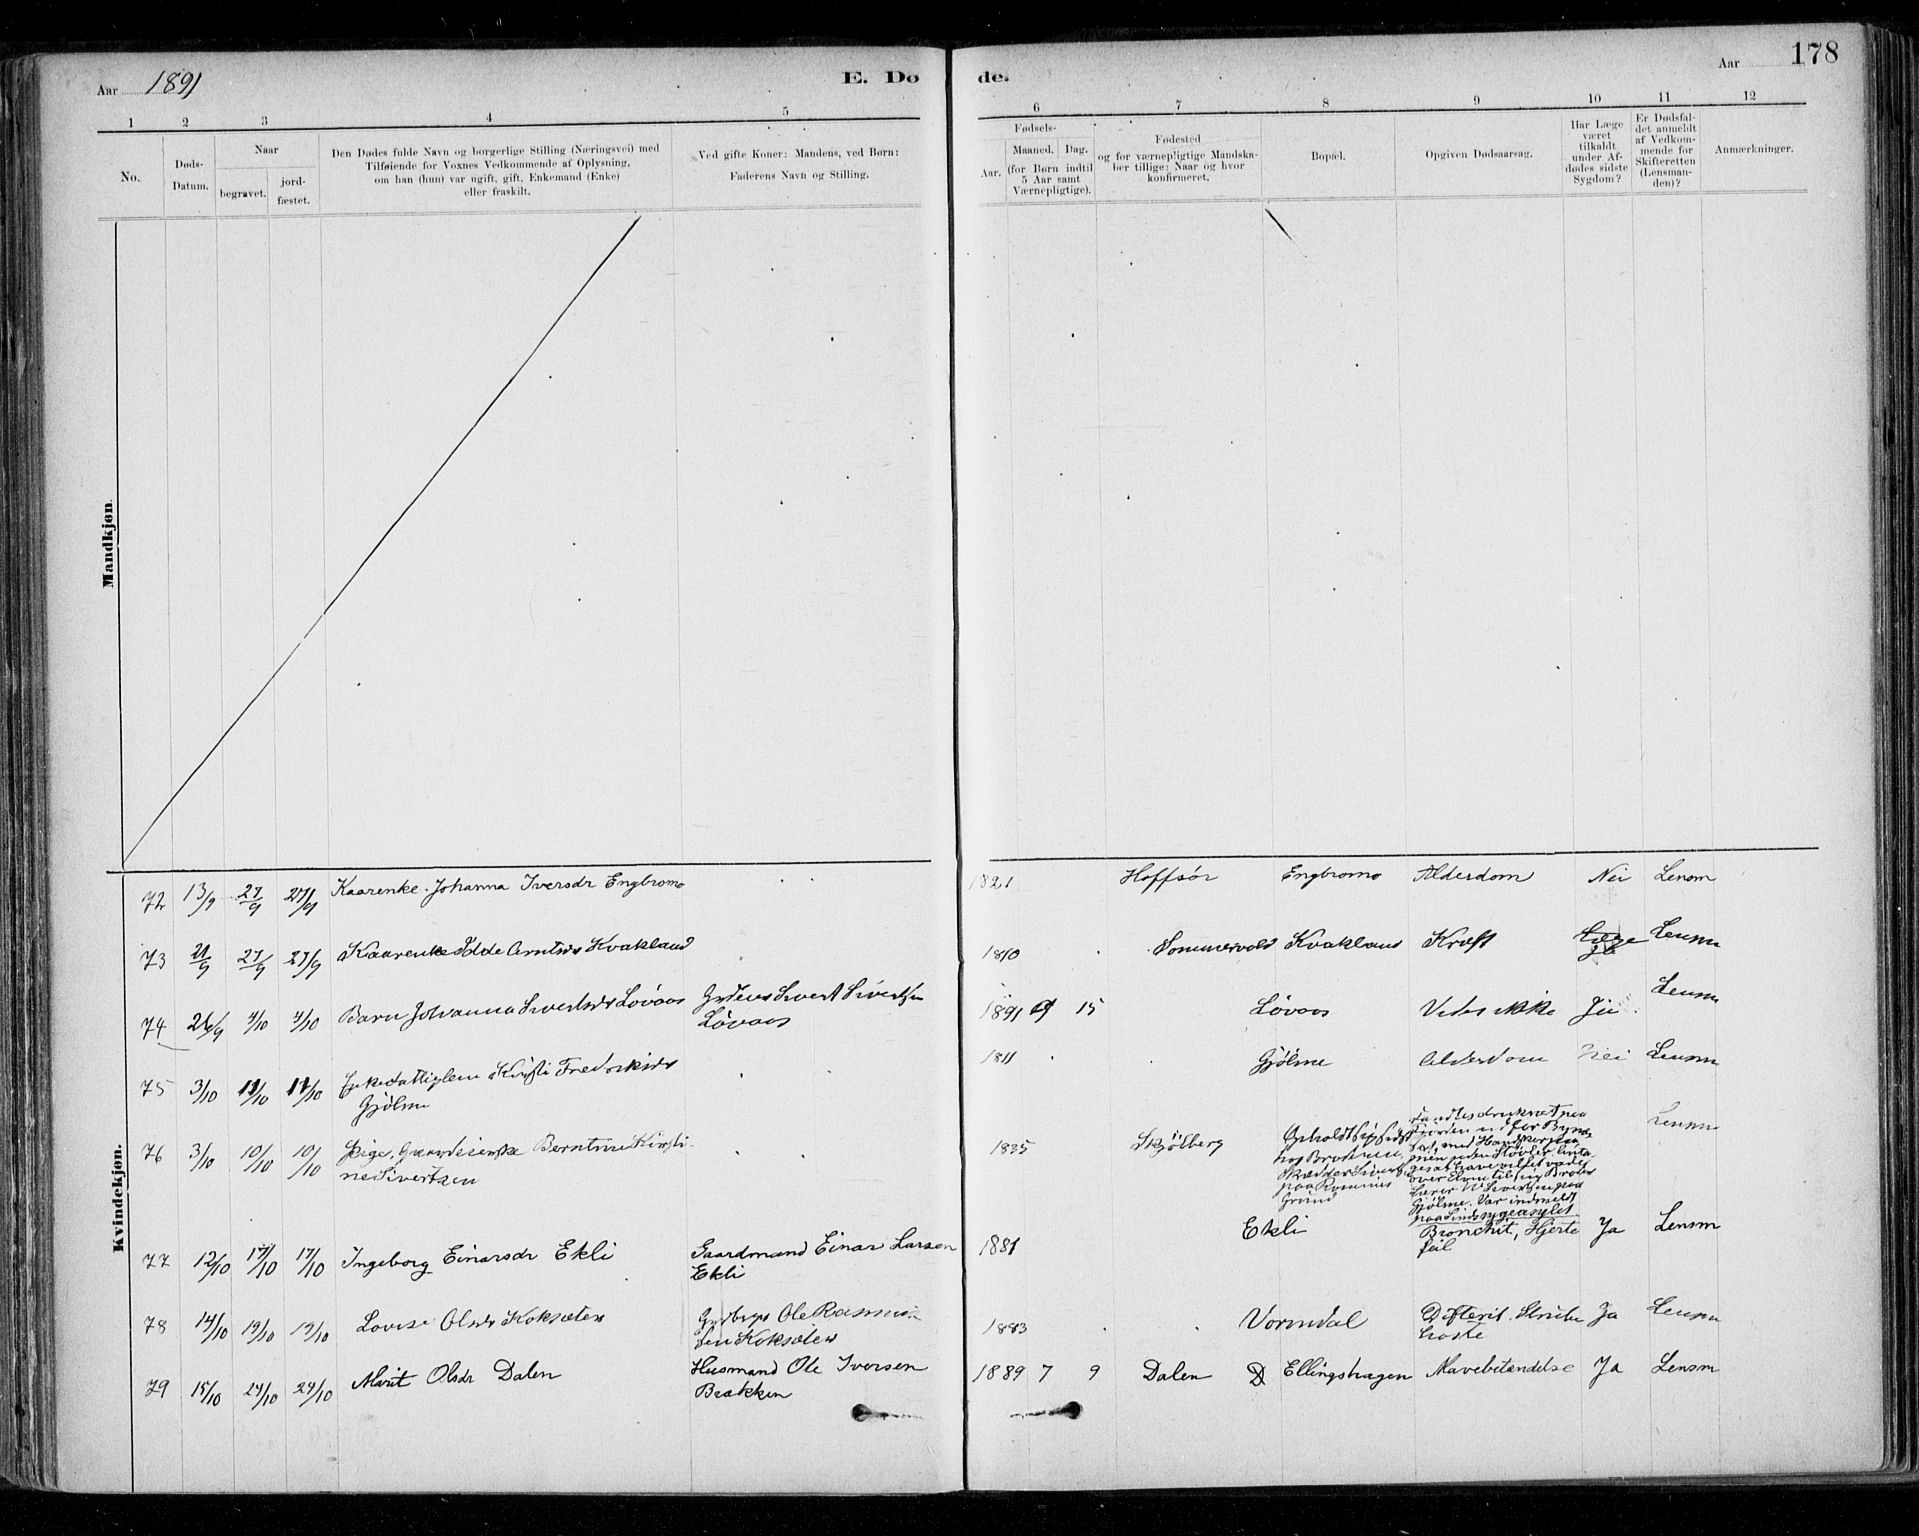 Aar 1891
E. Dø
de.
Aar
178
1 2 3 4 5 6 7 8 9 10 11 12
No.
Døds-
Datum.
Naar
begravet.
jord-
fæstet.
Den Dødes fulde Navn og borgerlige Stilling (Næringsvei) med
Tilføiende for Voxnes Vedkommende af Oplysning,
om han (hun) var ugift, gift, Enkemand (Enke)
eller fraskilt.
Ved gifte Koner: Mandens, ved Børn:
Faderens Navn og Stilling.
Fødsels-
Aar.
Maaned. Dag.
(for Børn indtil
5 Aar samt
Værnepligtige).
Fødested
og for værnepligtige Mandska-
ber tillige: Naar og hvor
konfirmeret.
Bopæl.
Opgiven Dødsaarsag.
Har Læge
været
tilkaldt
under Af-
dødes sidste
Sygdom?
Er Dødsfal-
det anmeldt
af Vedkom-
mende for
Skifteretten
(Lensman-
den)?
Anmærkninger.
Mandkjøn
Kvindekjøn.
72 13/9 27/9 27/9 Kaarenke Johanna Iversdr Engbromo 1821 Hoffsör Engbromo Alderdom Nei Lensm
73 21/9 27/9 27/9 Kaarenke Arntsdr Kvakland 1810 Sommervold Kvakland Kræft Lensm
74 26/9 4/10 4/10 Barn Johanna Sivertsdr Lövaas Sivert Sivertsen
Lövaas
1891 9 15 Lövaas Vides ikke Lensm
75 3/10 11/10 11/10 Kirsti Fredriksdr
Gjölme
1811 Gjölme Alderdom Nei Lensm
76 3/10 10/10 10/10 Pige, Berntine Kirsti-
ne Sivertsen
1835 Skjölberg
hos Broderen,
Skrædder Sivert
paa Rommes
Grund
Fandtes druknet paa
Fjorden ud for
med
uden Støvler
at have villet vade
over Elven til sin Broder
Lærer Sivertsen paa
Gjölme. Var indmeldt
paa Sindssygeasylet
Lensm
77 12/10 17/10 17/10 Ingeborg Einarsdr Ekli Gaardmand Einar Larsen
Ekli
1881 Ekli Bronchit, Hjerte
feil
Ja Lensm
78 14/10 19/10 19/10 Lovise Olsdr Koksæter Ole Rasmus
sen Koksæter
1883 Vormdal Difterit, Strube
hoste
Ja Lensm
79 15/10 24/10 24/10 Marit Olsdr Dalen Husmand Ole Iversen
Brækken
1889 7 9 Dalen Ellingshagen Mavebetændelse Ja Lensm